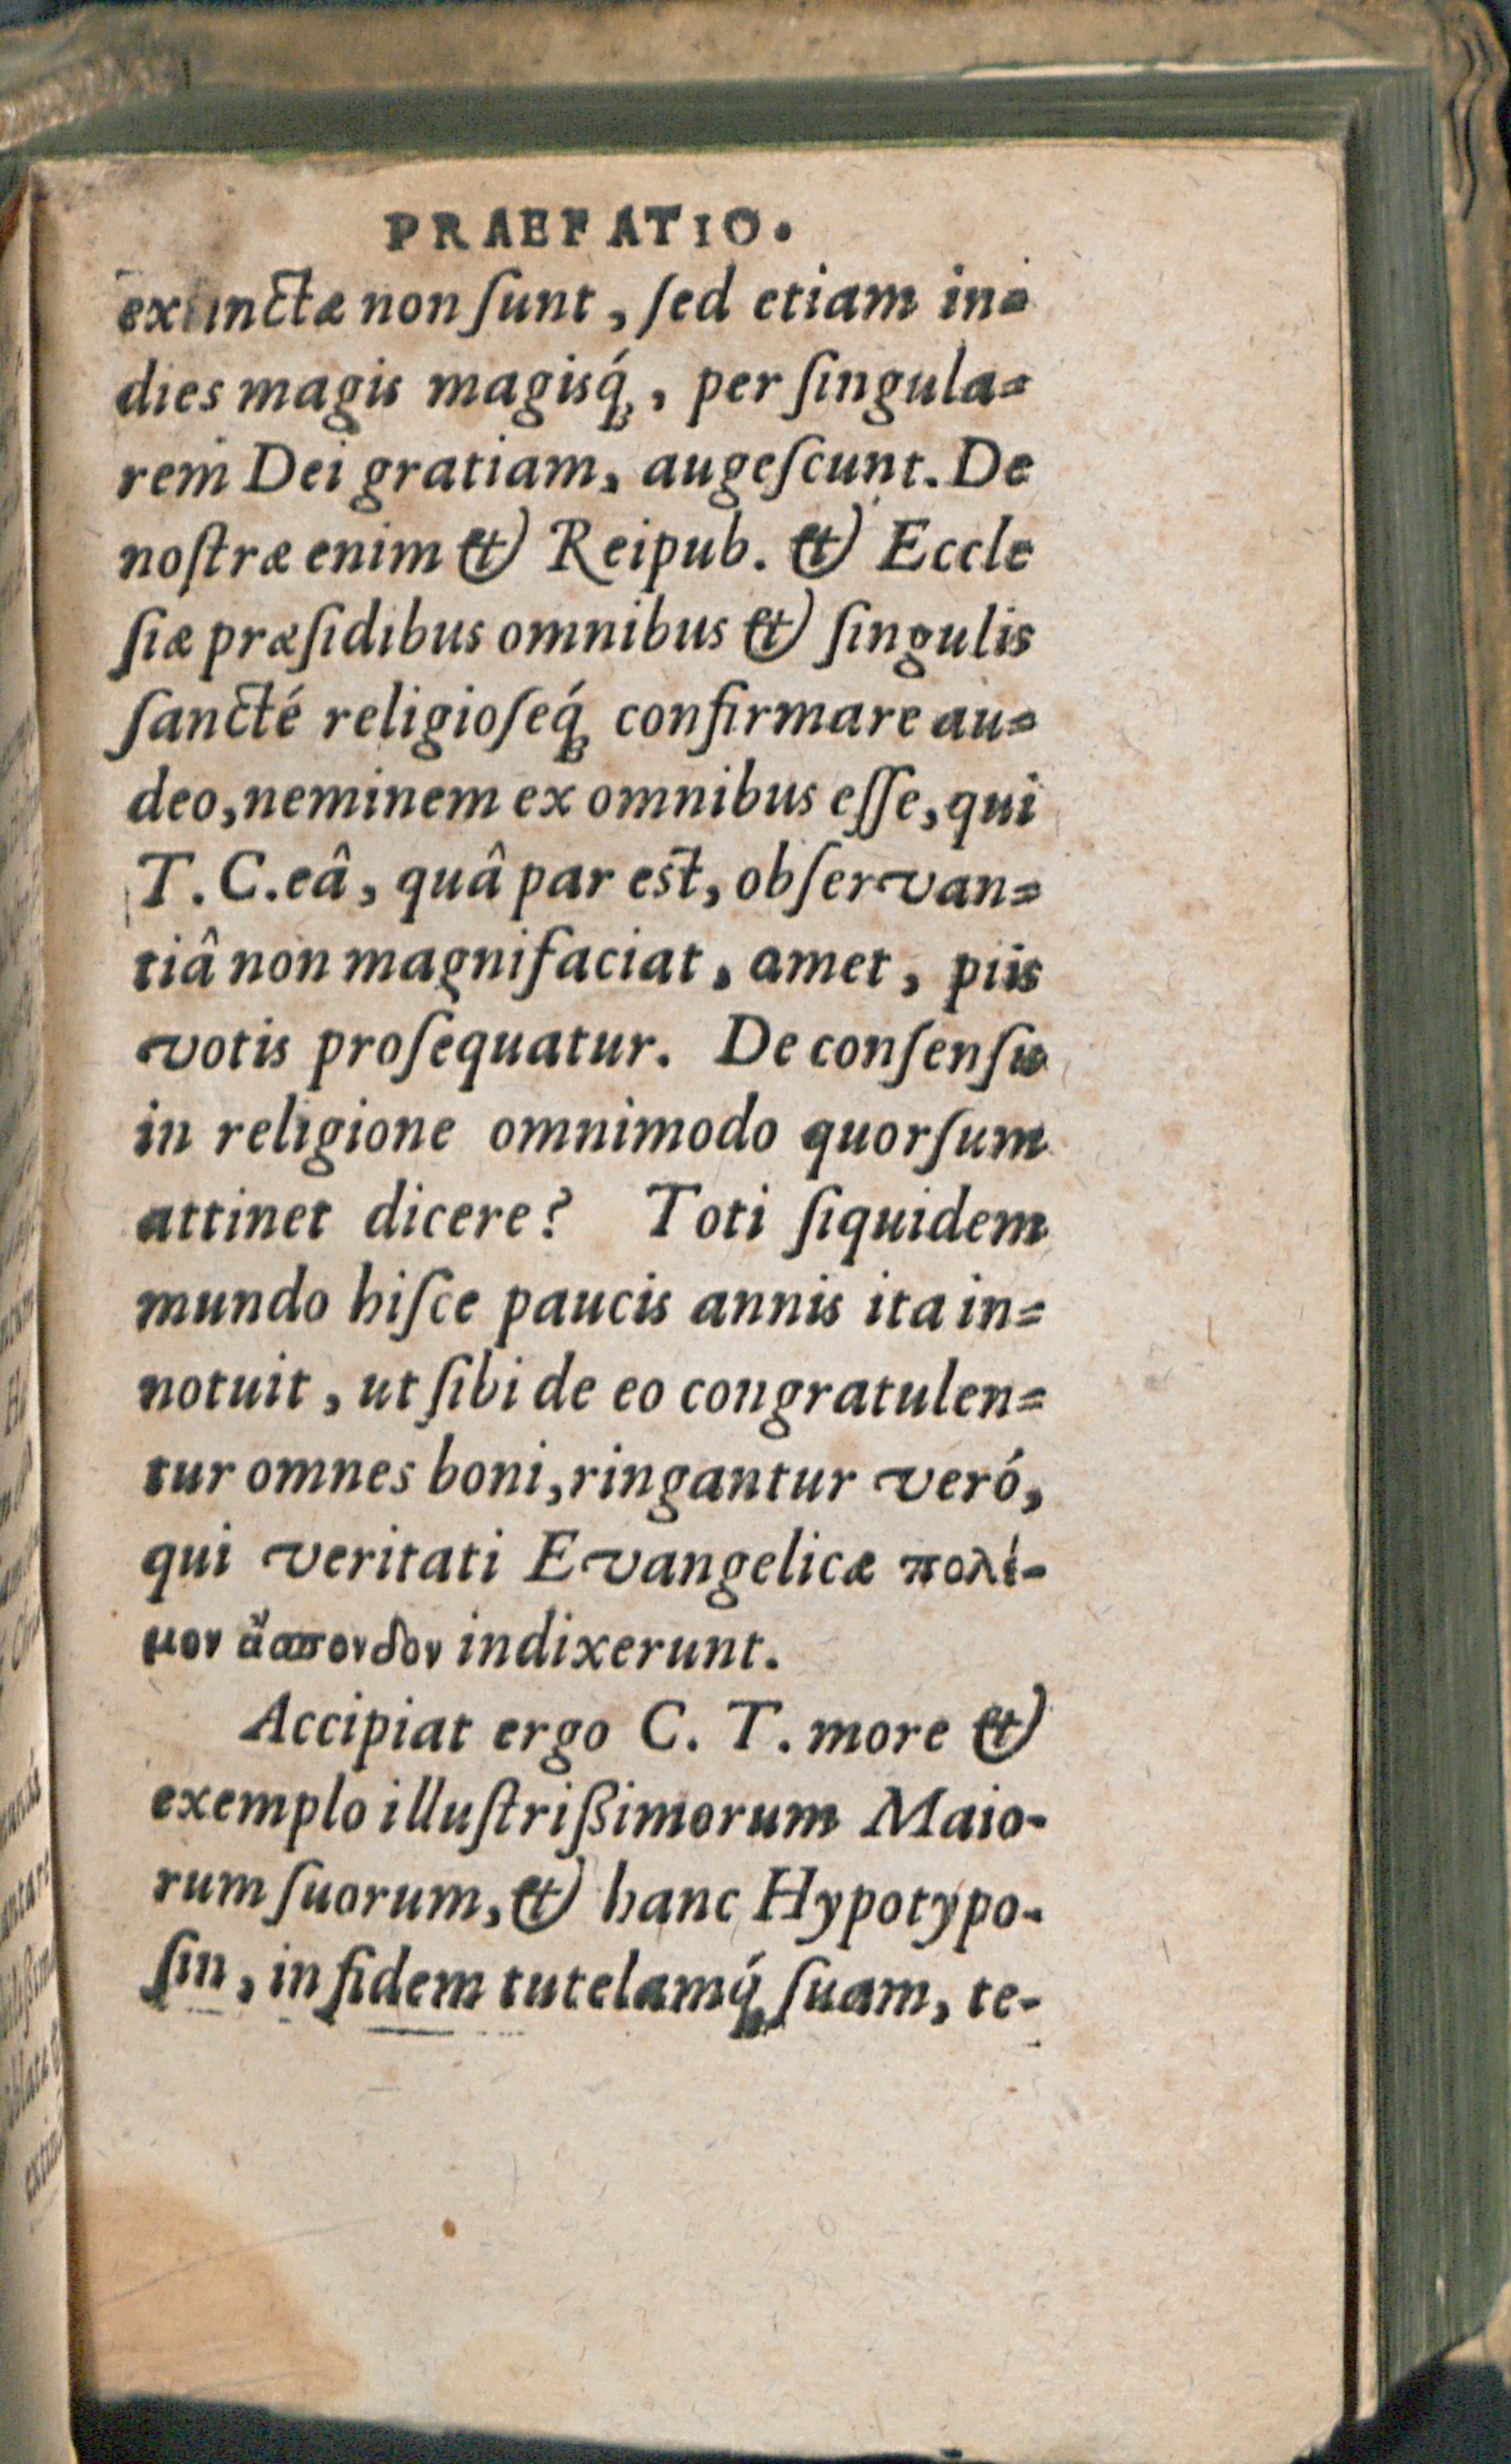 PRAEFATIO.
extinctæ non ſunt, ſed etiam in=
dies magis magisq́ꝫ, per ſingula=
rem Dei gratiam, augeſcunt. De
noſtræ enim & Reipub. & Eccle
ſiæ præſidibus omnibus & ſingulis
ſancté religioſeq́ꝫ confirmare au=
deo, neminem ex omnibus eſſe, qui
T. C. eâ, quâ par est, obſervan=
tiâ non magnifaciat, amet, piis
votis proſequatur. De conſenſu
in religione omnimodo quorſum
attinet dicere? Toti ſiquidem
mundo hiſce paucis annis ita in=
notuit, ut ſibi de eo congratulen=
tur omnes boni, ringantur veró,
qui veritati Evangelicæ πολέ-
μον ἄσπονδον indixerunt.
Accipiat ergo C. T. more &
exemplo illuſtriſſimorum Maio-
rum ſuorum, & hanc Hypotypo-
ſin, in fidem tutelamq́ꝫ ſuam, te-